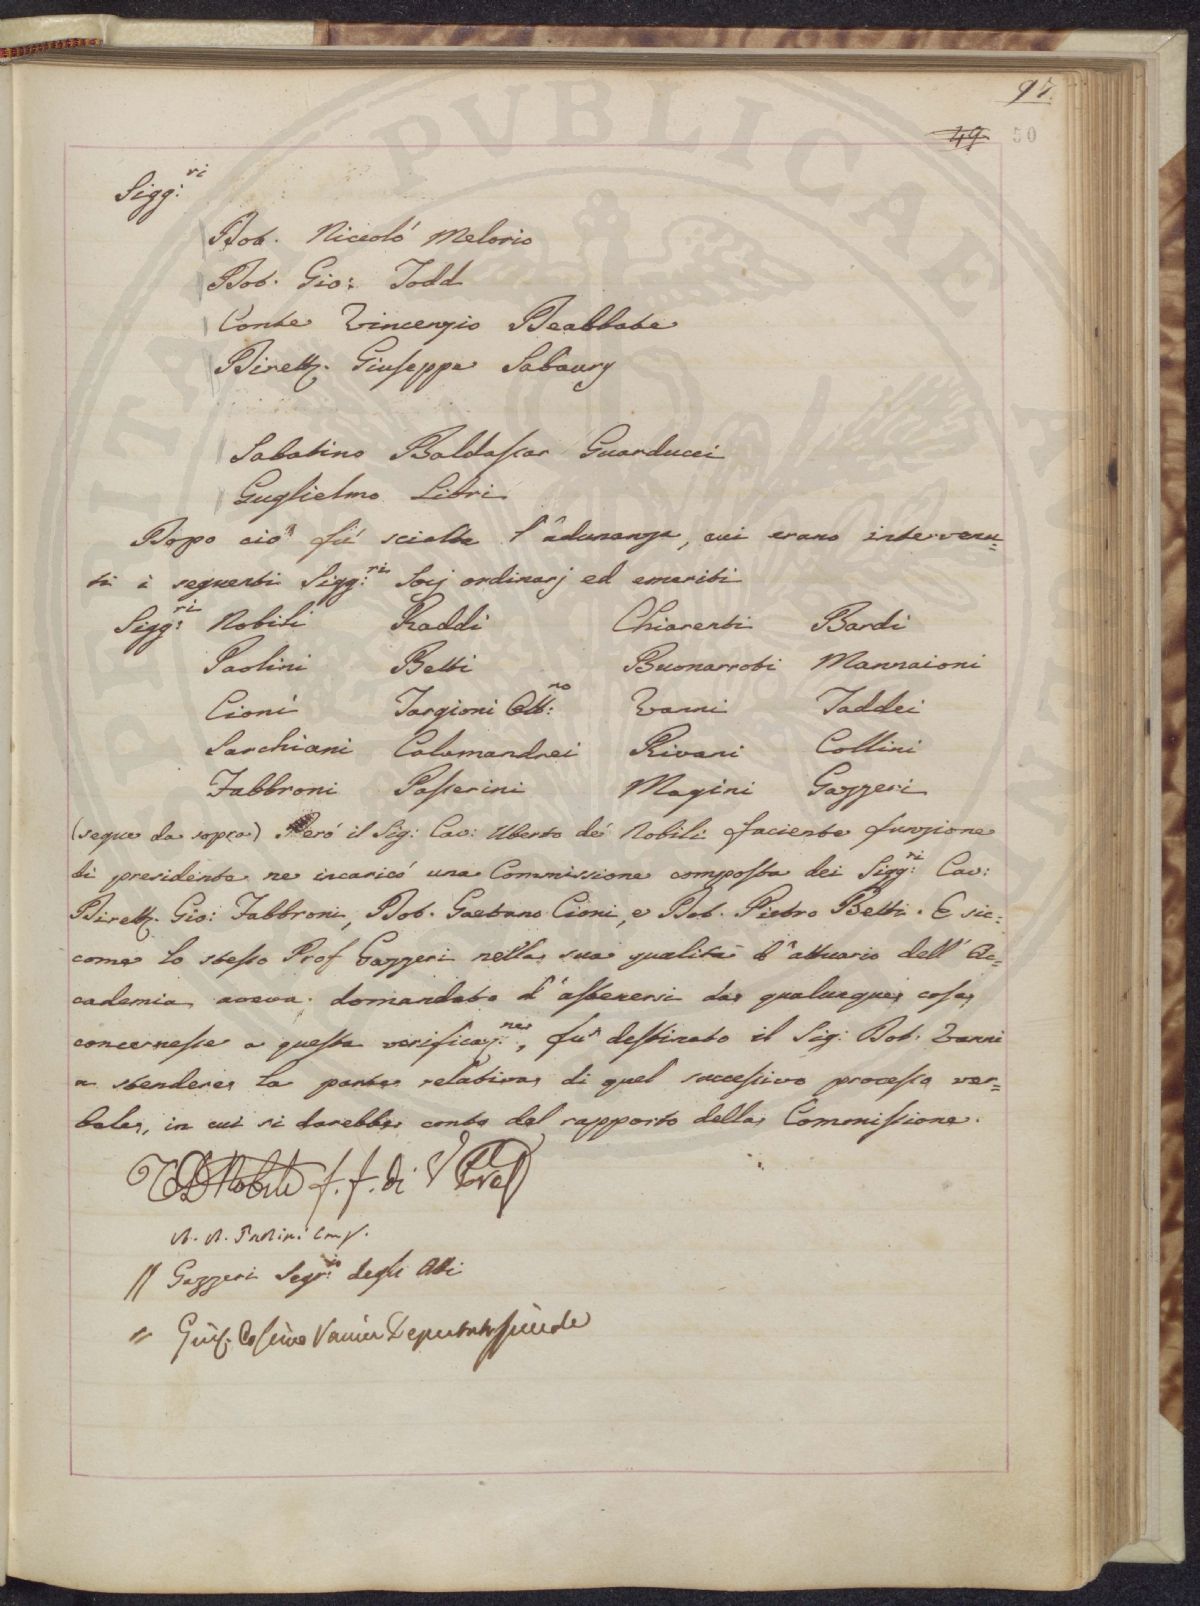 97.
49 50
Sigg:ri
Dot. Niccolò Melorio
Dot. Gio: Todd
Conte Vincenzio Deabbate
Dirett. Giuseppe Sabaury
Sabatino Baldassar Guarducci
Guglielmo Libri
Dopo ciò fù sciolta l'adunanza, cui erano intervenu=
ti i seguenti Sigg:ri Socj ordinarj ed emeriti
Sigg:ri Nobili Raddi Chiarenti Bardi
Paolini Betti Buonarroti Mannaioni
Cioni Targioni Ott:no Vanni Taddei
Sarchiani Calamandrei Rivani Collini
Fabbroni Passerini Magini Gazzeri
(segue da sopra) Però il Sig: Cav: Uberto dè Nobili faciente funzione
di presidente ne incaricò una Commissione composta dei Sigg:ri Cav:
Dirett. Gio: Fabbroni, Dot. Gaetano Cioni, e Dot. Pietro Betti. E sic=
come lo stesso Prof Gazzeri nella sua qualità d'attuario dell'Ac=
cademia aveva domandato d'astenersi da qualunque cosa
concernesse a questa verificaz:ne, fù destinato il Sig: Dot. Vanni
a stendere la parte relativa di quel successivo processo ver=
bale, in cui si darebbe conto del rapporto della Commissione.
Nobili f. f. di Pres
Gazzeri Segr:io degli Atti
Vanni Deputato